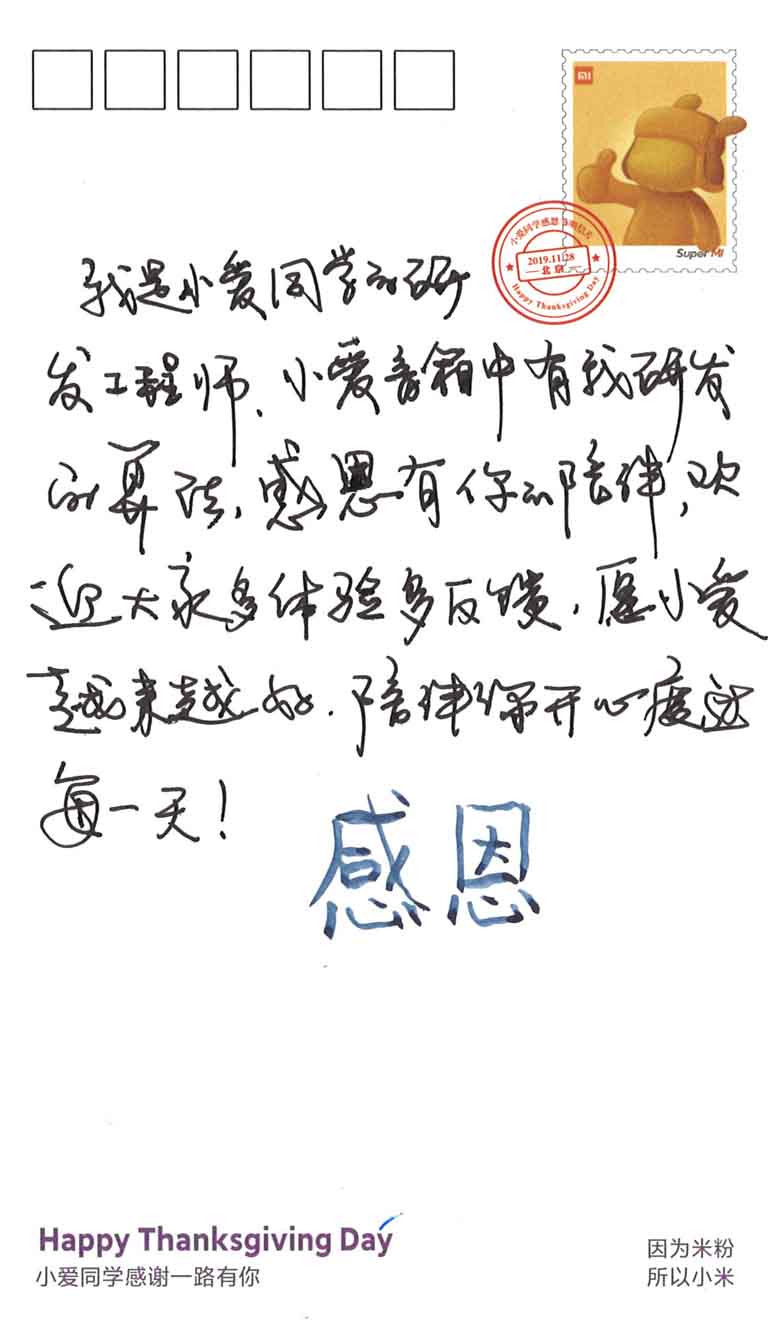 MI
Super MI
小爱同学感恩节明信片
2019.11.28
北京
Happy Thanksgiving Day
我是小爱同学的研
发工程师、小爱音箱中有我研发
的算法,感恩有你的陪伴,欢
迎大家多体验多反馈,愿小爱
越来越好.陪伴你开心度过
每一天!
感恩
Happy Thanksgiving Day
小爱同学感谢一路有你
因为米粉
所以小米